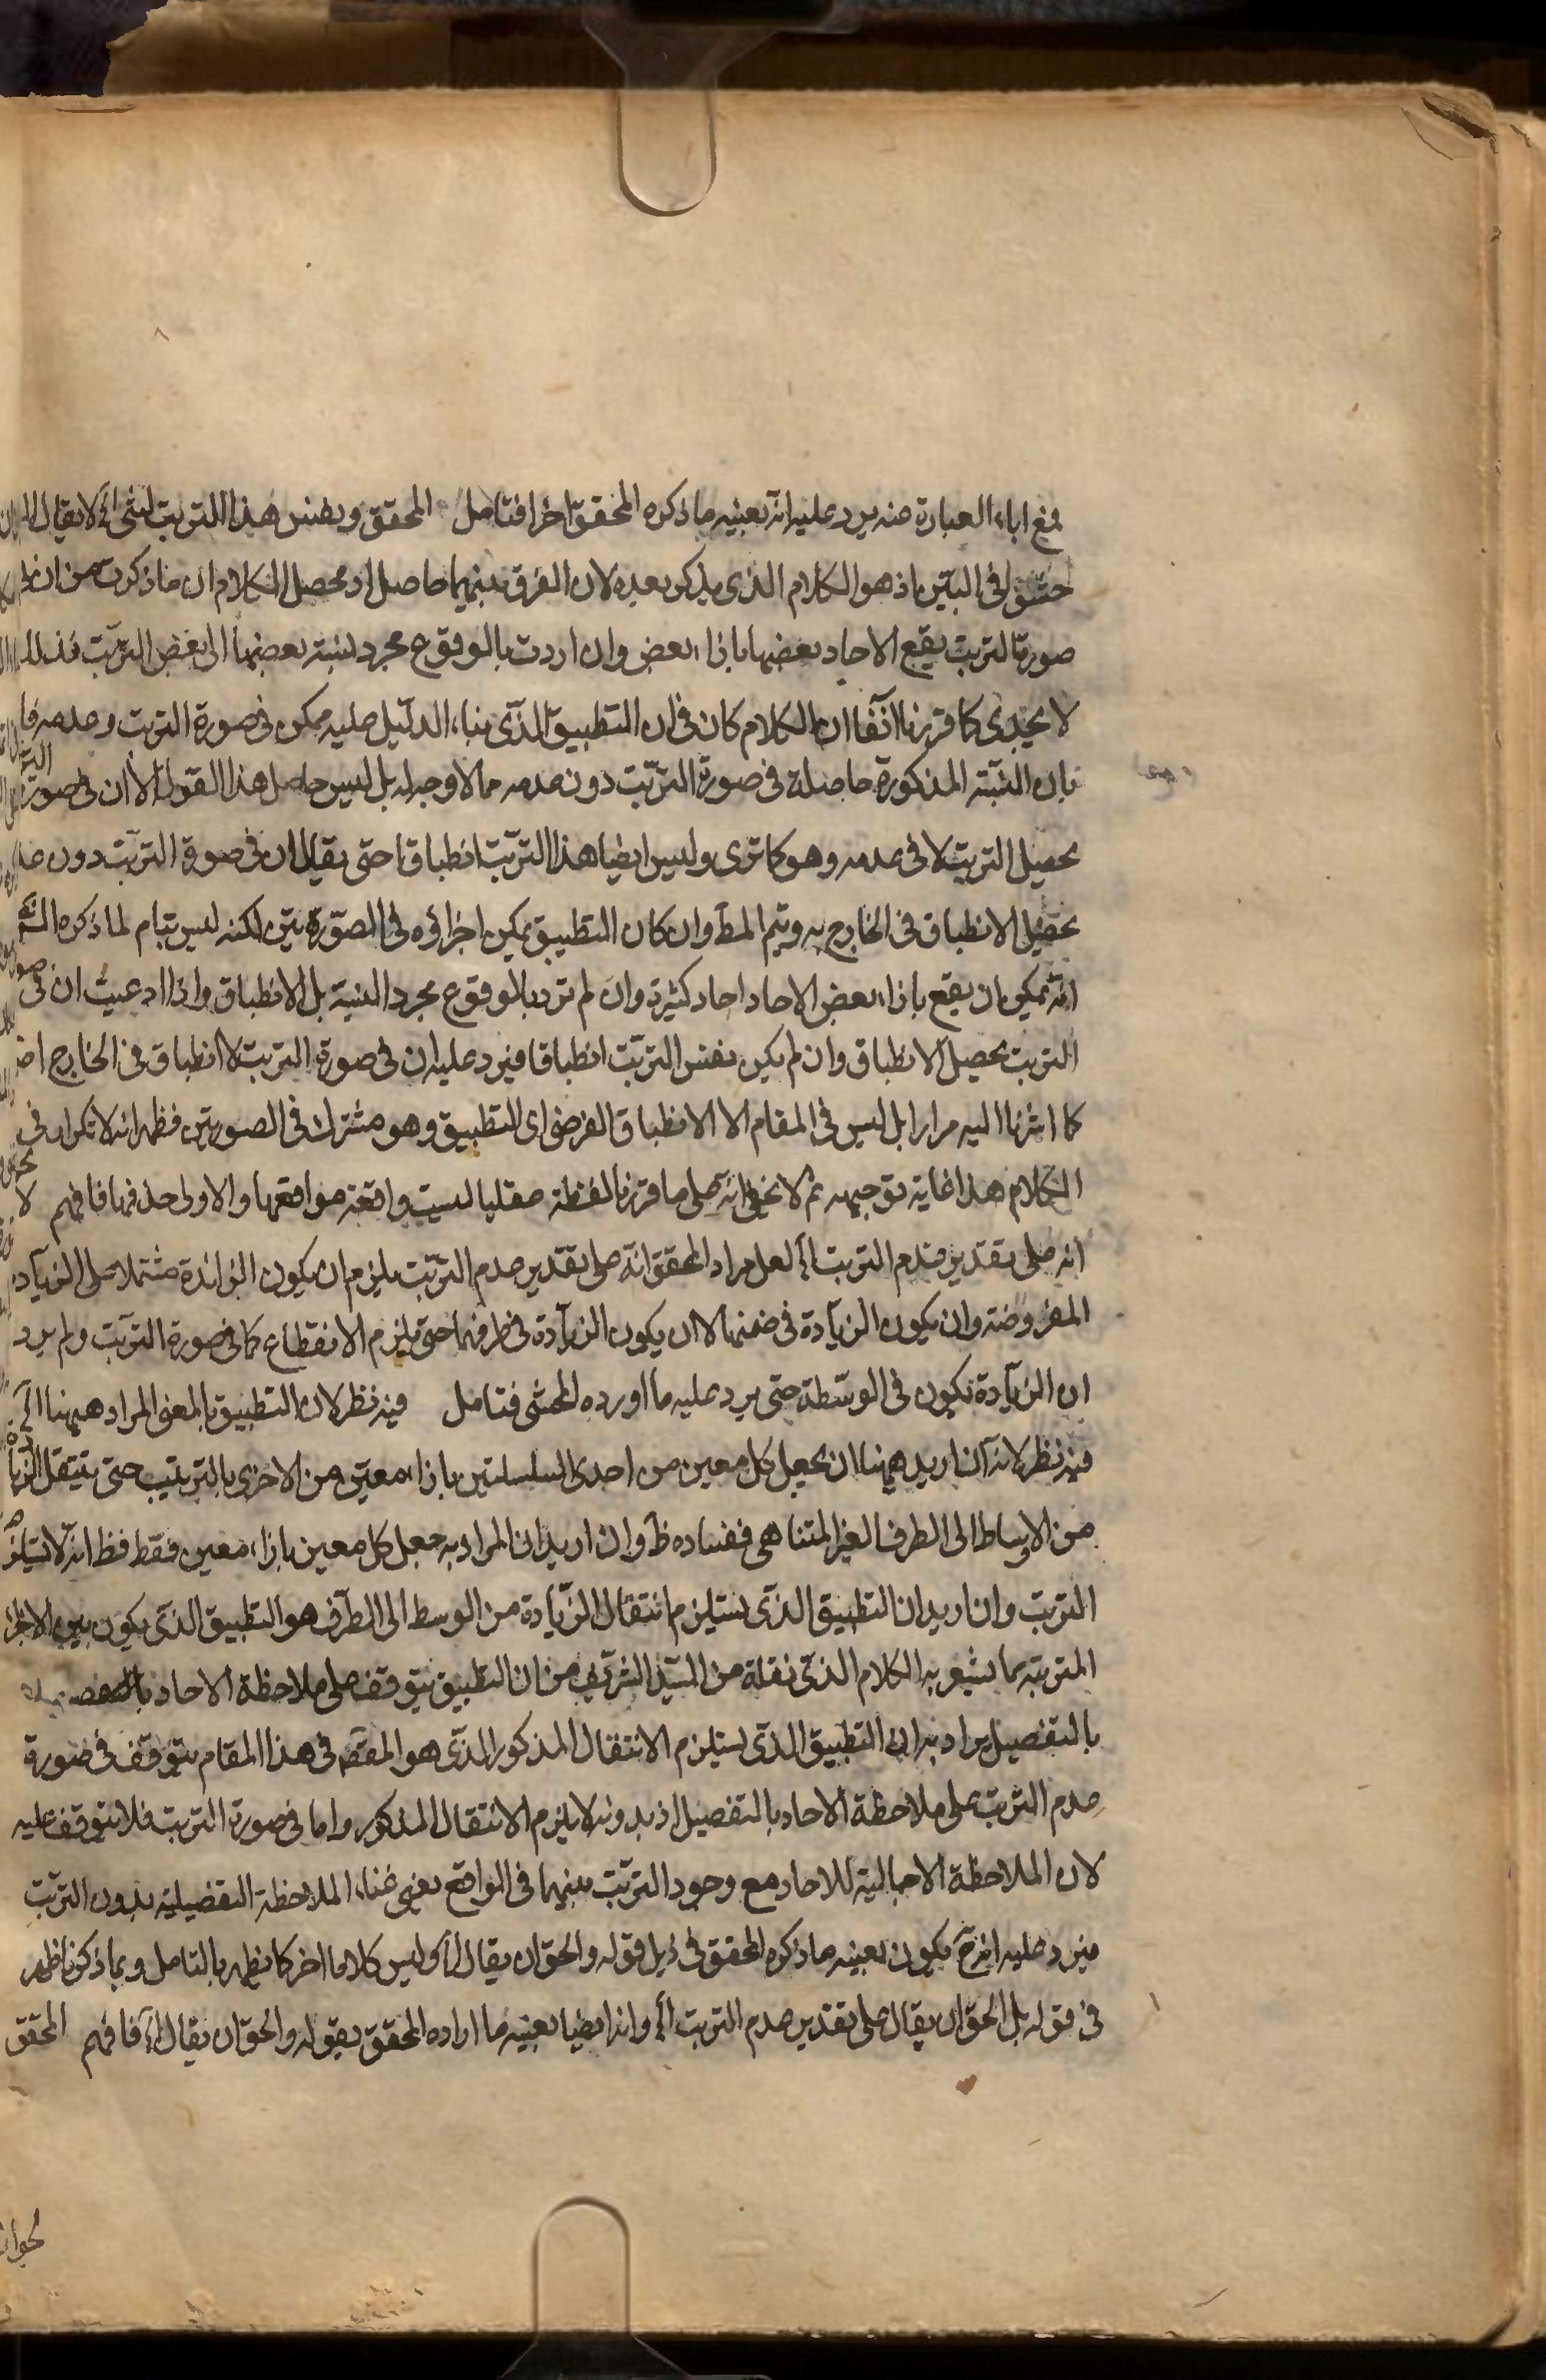 فمع اباء العبارة عنه يرد عليه انه بعينه ما ذكره المحقق اخرا فتامل المحقق وبنفس هذا الترتب لشئ اﻟﺦ لا يقال
حشو فى البين اذ هو الكلام الذى يذكر بعيده لان الفرق بينهما حاصل اذ محصل الكلام ان ما ذكرت من ان فى
صورة الترتب يقع الاحاد بعضها بازاء بعض وان اردت بالوقوع مجرد نسبة بعضها الى بعض الترتب فذلك
لا يجدى كما قررنا آنفا ان الكلام كان فى ان التطبيق الذى بناء الدليل عليه ممكن فى صورة الترتب وعدمه
بان النسبة المذكورة حاصلة فى صورة الترتب دون عدمه مما لا وجه له بل ليس حاصل هذا القول الا ان فى صورة
يحصل الترتب لا فى عدمه وهو كما ترى وليس ايضا هذا الترتب انطباقا حتى يقال ان فى صورة الترتب دون
يحصل الانطباق فى الخارج به ويتم المط وان كان التطبيق يمكن اجراؤه فى الصورتين لكنه ليس بتام لما ذكره
انه يمكن ان يقع بازاء بعض الاحاد احاد كثيرة وان لم ترد بالوقوع مجرد النسبة بل الانطباق واذا ادعيت ان فى صورة
الترتب يحصل الانطباق وان لم يكن نفس الترتب انطباقا فيرد عليه ان فى صورة الترتب لا انطباق فى الخارج
كما اشرنا اليه مرارا بل ليس فى المقام الا الانطباق الفرضى اى التطبيق وهو مشترك فى الصورتين فظهر انه لا تكرار فى
الكلام هذا غاية توجيهه ثم لا يخفى انه على ما قررنا لفظة عقليا ليست واقعة موقعها والاولى حذفها فافهم لا
انه على تقدير عدم الترتب اﻟﺦ لعل مراد المحقق انه على تقدير عدم الترتب يلزم ان يكون الزائدة مشتملا على الزيادة
المفروضة وان يكون الزيادة فى ضمنها لا ان يكون الزيادة فى طرفها حتى يلزم الانقطاع كما فى صورة الترتب ولم يرد
ان الزيادة تكون فى الوسط حتى يرد عليه ما اورده المحشى فتامل فيه نظر لان التطبيق بالمعنى المراد ههنا اﻟﺦ
فيه نظر لانه ان اريد ههنا ان يجعل كل معين من احدى السلسلتين بازاء معين من الاخرى بالترتيب حتى ينتقل الزيادة
من الاوساط الى الطرف الغير المتناهى ففساده ظ وان اريد ان المراد به جعل كل معين بازاء معين فقط فظ انه لا يستلزم
الترتب وان اريد ان التطبيق الذى يستلزم انتقال الزيادة من الوسط الى الطرف هو التطبيق الذى يكون بين الاجزاء
المترتبة كما يشعر به الكلام الذى نقله من السيد الشريف من ان التطبيق يتوقف على ملاحظة الاحاد
بالتفصيل يراد به ان التطبيق الذى يستلزم الانتقال المذكور الذى هو المقصود فى هذا المقام يتوقف فى صورة
عدم الترتب على ملاحظة الاحاد بالتفصيل اذ بدونه لا يلزم الانتقال المذكور واما فى صورة الترتب فلا يتوقف عليه
لان الملاحظة الاجمالية للاحاد مع وجود الترتب بينهما فى الواقع يغنى غناء الملاحظة التفصيلية بدون الترتب
فيرد عليه انه ح يكون بعينه ما ذكره المحقق فى ذيل قوله والحق ان يقال اﻟﺦ وليس كلاما اخر كما يظهر بالتامل وبما ذكرنا ظهر
فى قوله بل الحق ان يقال على تقدير عدم الترتب اﻟﺦ وانه ايضا بعينه ما اراده المحقق بقوله والحق ان يقال اﻟﺦ فافهم المحقق